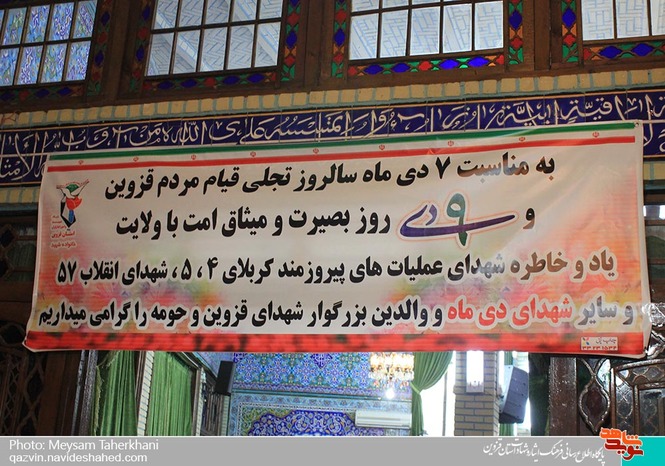 به مناسبت ۷ دی ماه سالروز تجلی قیام مردم قزوین
و ۹ دی روز بصیرت و میثاق امت با ولایت
یاد و خاطره شهدای عملیات های پیروزمند کربلای ۴ ، ۵ ، شهدای انقلاب ۵۷
و سایر شهدای دی ماه و والدین بزرگوار شهدای قزوین و حومه را گرامی میداریم
Photo: Meysam Taherkhani
qazvin.navideshahed.com
نوید شاهد
پایگاه اطلاع رسانی فرهنگ ایثار و شهادت استان قزوین